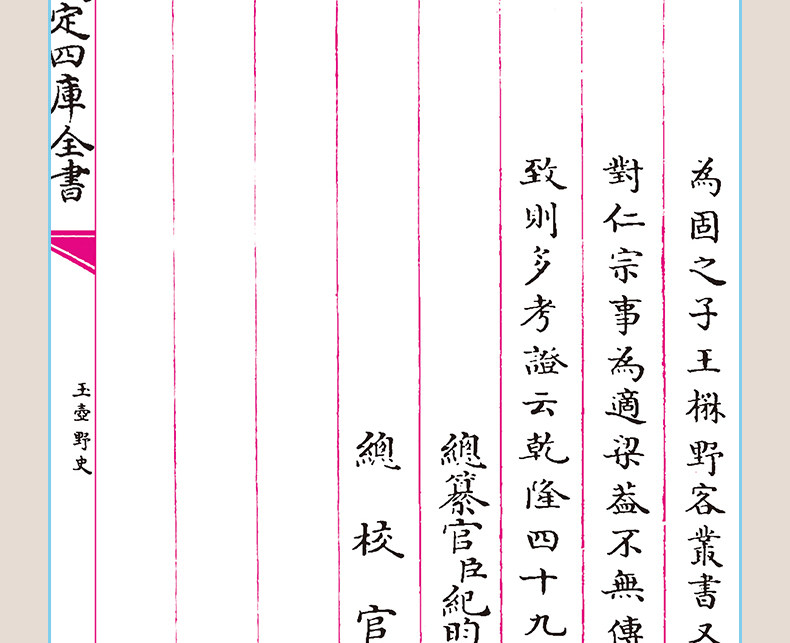 為固之子王楙野客叢書又
對仁宗事為適梁葢不無傳
致則多考證云乾隆四十九
總纂官臣紀昀
總校官
定四庫全書
玉壺野史